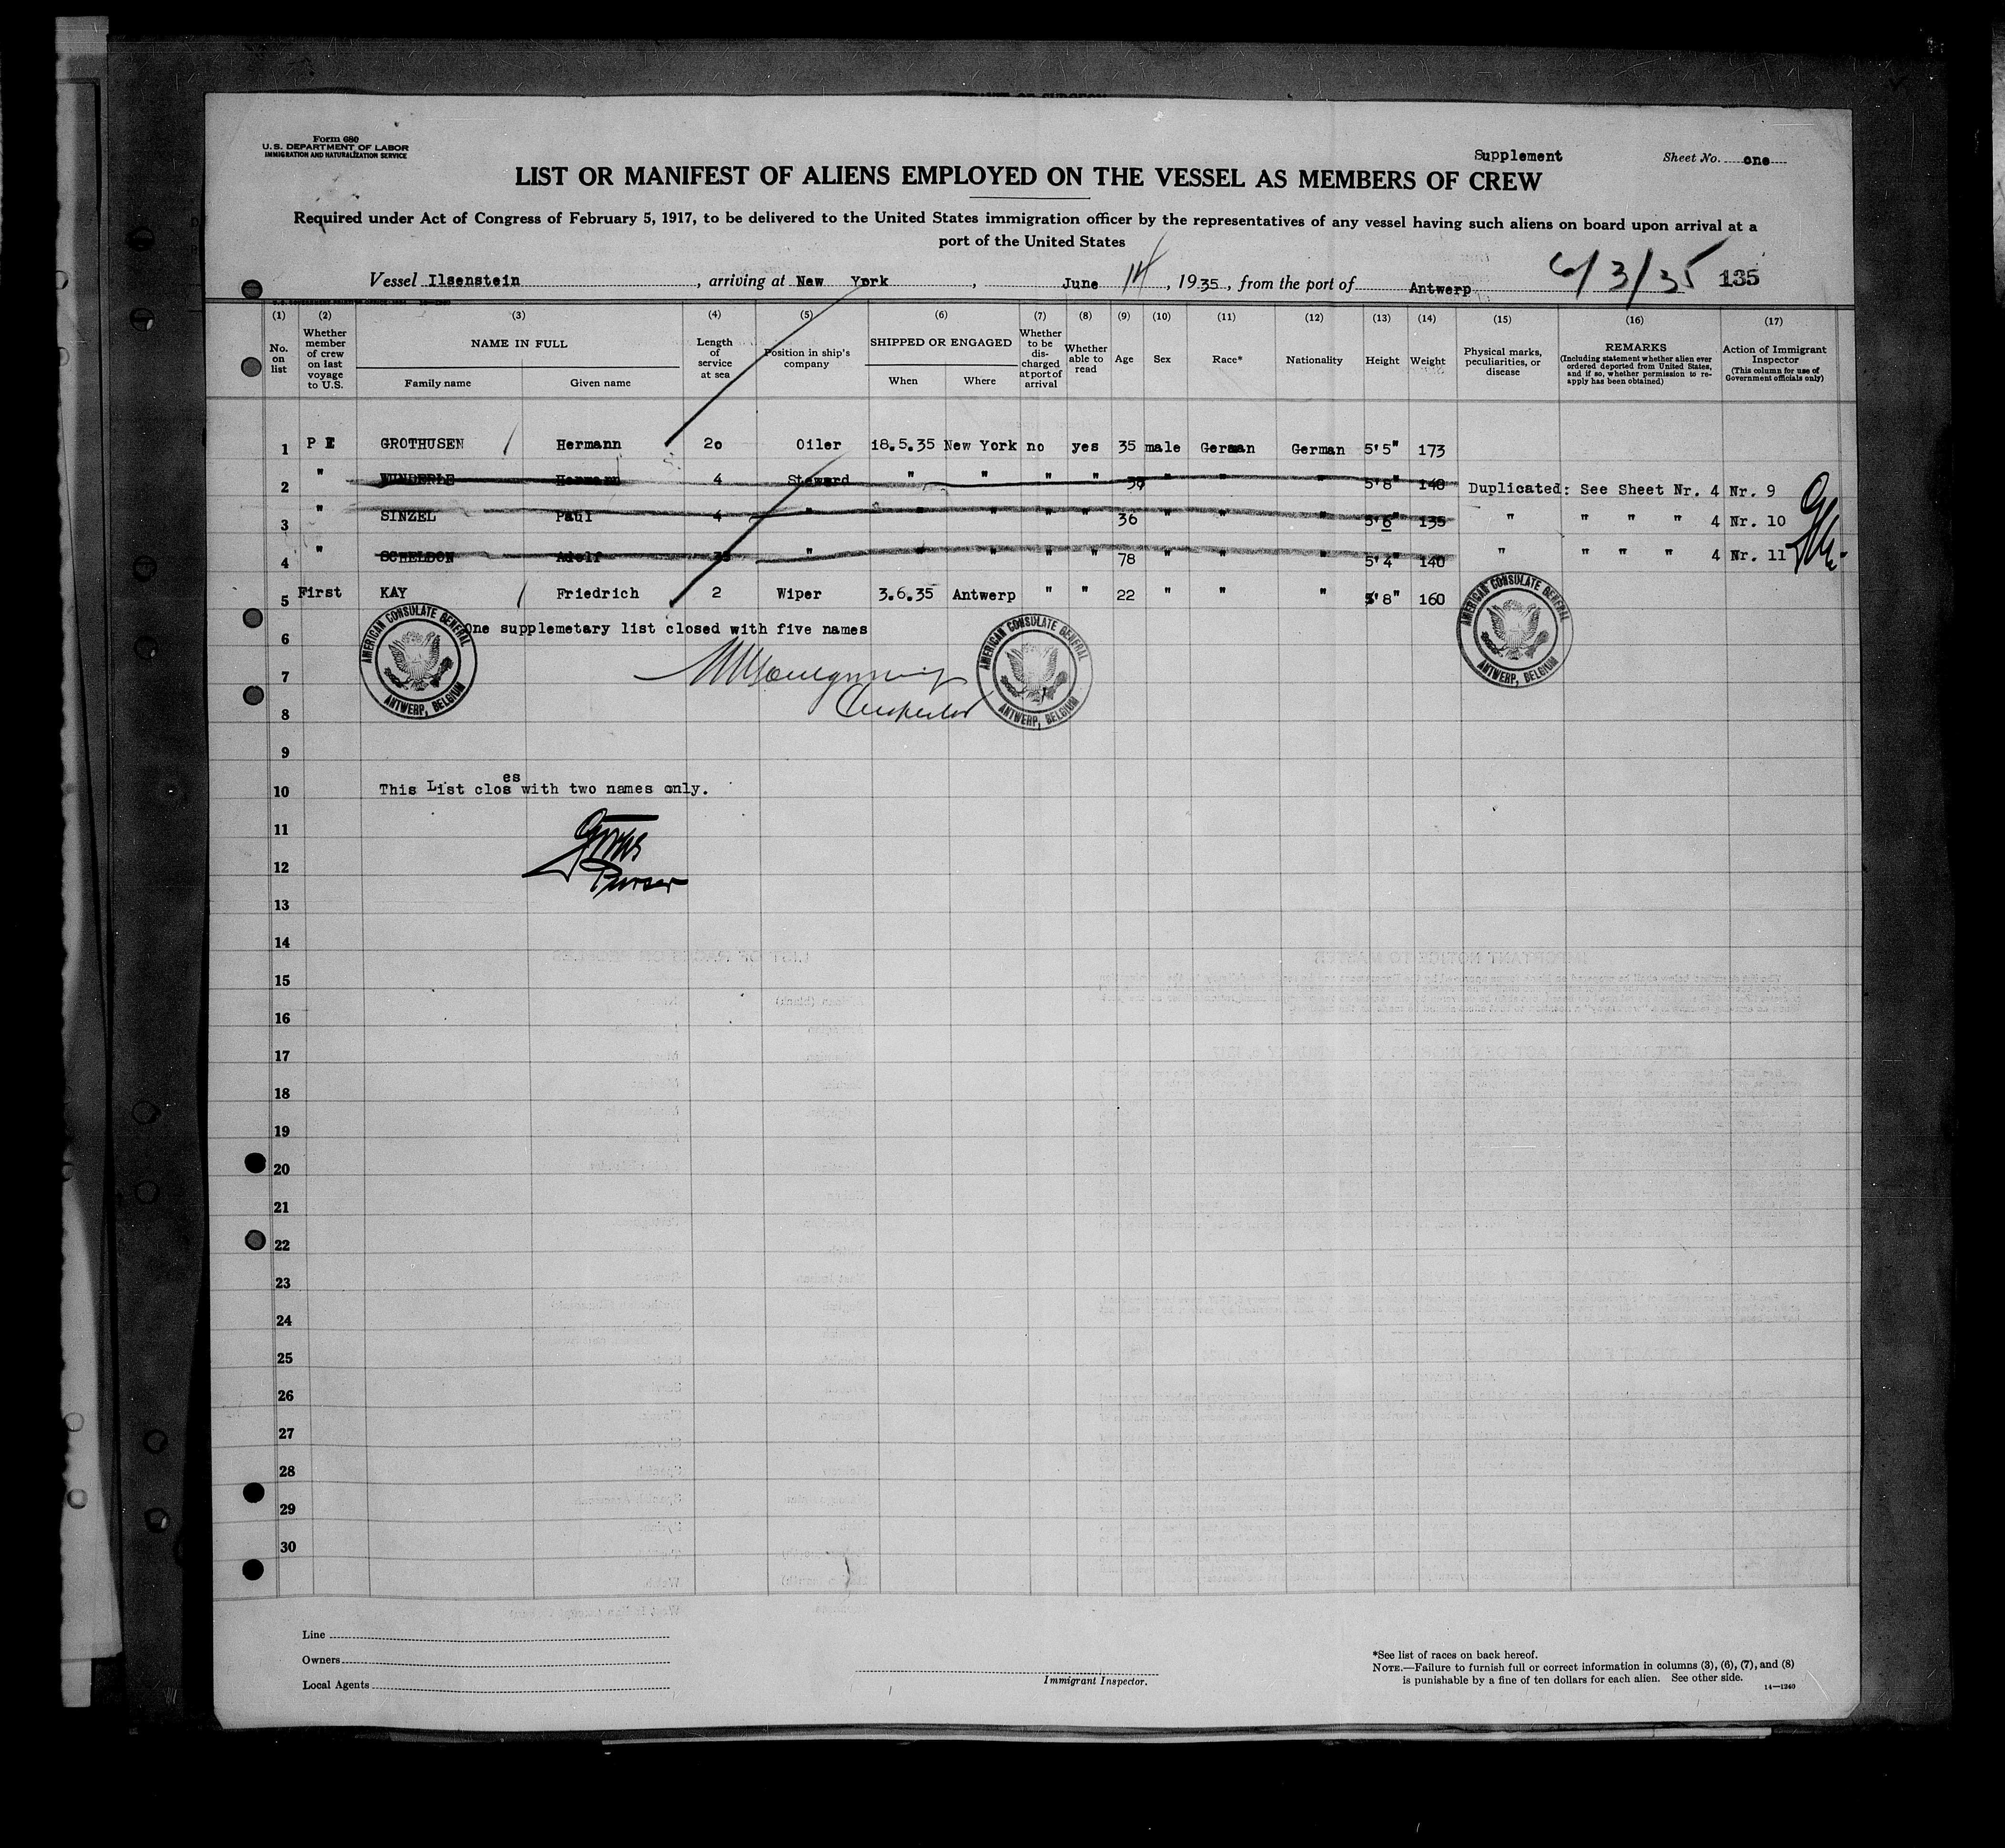 Form 680
U.S. DEPARTMENT OF LABOR
IMMIGRATION AND NATURALIZATION SERVICE
Supplement
Sheet No. one
LIST OR MANIFEST OF ALIENS EMPLOYED ON THE VESSEL AS MEMBERS OF CREW
Required under Act of Congress of February 5, 1917, to be delivered to the United States immigration officer by the representatives of any vessel having such aliens on board upon arrival at a
port of the United States
Vessel Ilsenstein, arriving at New York, June 14, 1935, from the port of Antwerp 6/3/35 135
(1) (2) (3) (4) (5) (6) (7) (8) (9) (10) (11) (12) (13) (14) (15) (16) (17)
No. on list
Whether member of crew on last voyage to U.S.
NAME IN FULL
Family name Given name
Length of service at sea
Position in ship's company
SHIPPED OR ENGAGED
When Where
Whether to be discharged at port of arrival
Whether able to read
Age
Sex
Race*
Nationality
Height
Weight
Physical marks, peculiarities, or disease
REMARKS
(Including statement whether alien ever ordered deported from United States, and if so, whether permission to reapply has been obtained)
Action of Immigrant Inspector
(This column for use of Government officials only)
1 GROTHUSEN Hermann 20 Oiler 18.5.35 New York no yes 35 male German German 5'5" 173
2 " WUNDERLE Hermann 4 Steward " " " " " " " 5'8" 140 Duplicated: See Sheet Nr. 4 Nr. 9
3 " SINZEL Paul 4 " " " " " 36 " " " 5'6" 135 " " " " 4 Nr. 10
4 " SCHELDON Adolf " " " " " 78 " " " 5'4" 140 " " " " 4 Nr. 11
5 First KAY Friedrich 2 Wiper 3.6.35 Antwerp " " 22 " " " 5'8" 160
One supplemetary list closed with five names
AMERICAN CONSULATE GENERAL ANTWERP, BELGIUM
AMERICAN CONSULATE GENERAL ANTWERP, BELGIUM
AMERICAN CONSULATE GENERAL ANTWERP, BELGIUM
6
7
8
9
10 This List closes with two names only.
11
12 Purser
13
14
15
16
17
18
19
20
21
22
23
24
25
26
27
28
29
30
Line
Owners
Local Agents
Immigrant Inspector.
*See list of races on back hereof.
NOTE.—Failure to furnish full or correct information in columns (3), (6), (7), and (8)
is punishable by a fine of ten dollars for each alien. See other side.
14—1240